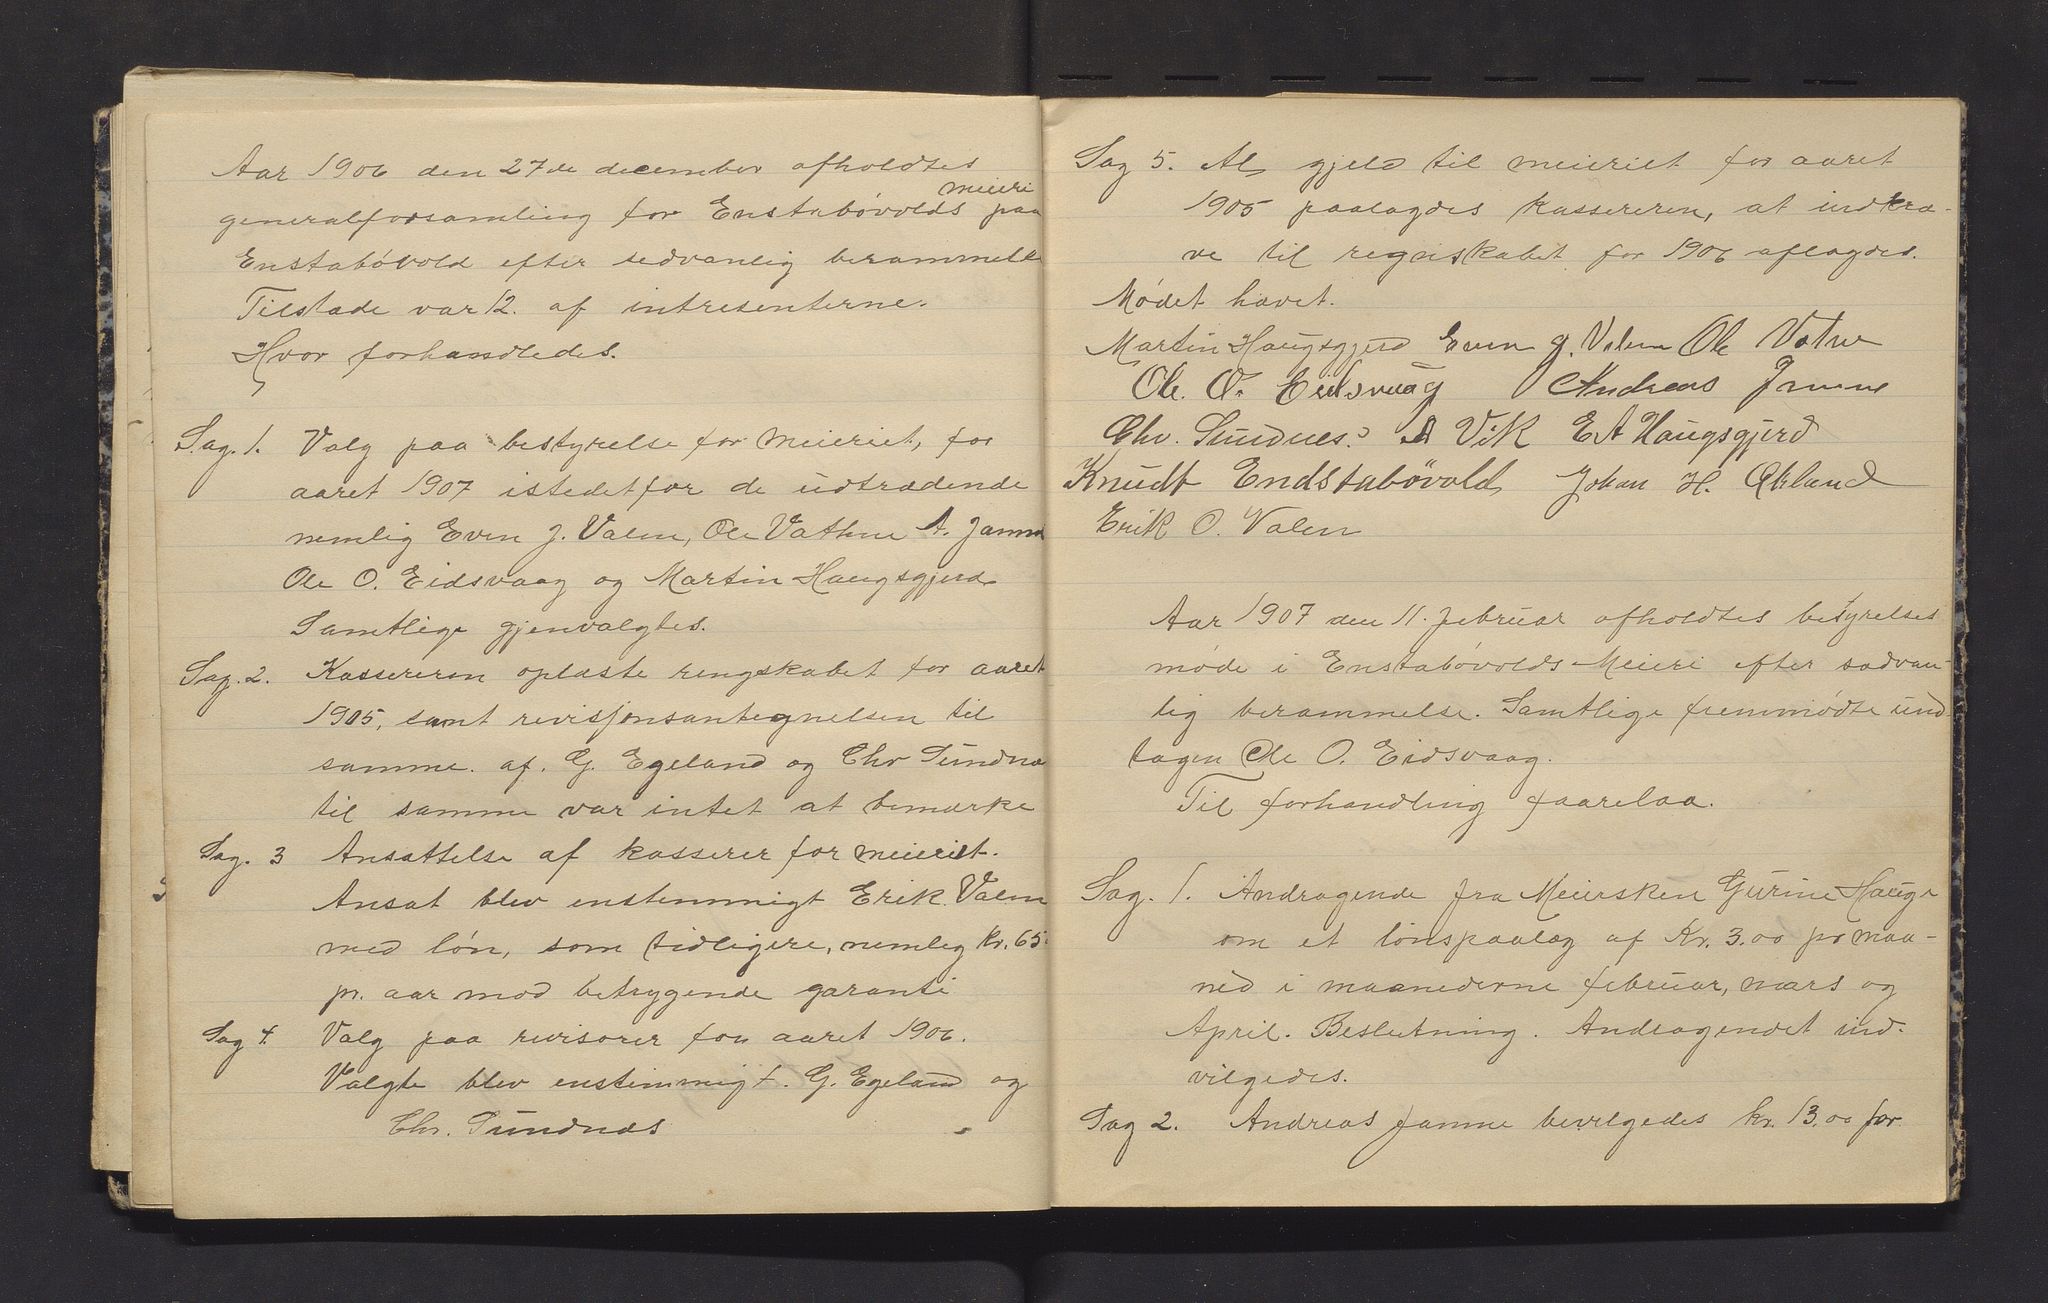 Aar 1906 den 27de december afholdtes
generalforsamling for Enstabövolds meieri paa
Enstabövold efter sedvanlig berammelse
Tilstede var 12. af intresenterne.
Hvor forhandledes.
Sag. 1. Valg paa bestyrelse for meieriet, for
aaret 1907 istedetfor de udtrædende
nemlig Even J. Valen, Ole Vathne A. Jamne
Ole O. Eidsvaag og Martin Haugsgjerd.
Samtlige gjenvalgtes.
Sag. 2. Kassereren oplæste rengskabet for aaret
1905, samt revisjonsantegnelsen til
samme. af. G. Egeland og Chr Sundnæs
til samme var intet at bemærke
Sag. 3 Ansættelse af kasserer for meieriet.
Ansat blev enstemmigt Erik Valen
med lön, som tidligere, nemlig kr. 65
pr. aar mod betrygende garanti
Sag 4. Valg paa revisorer for aaret 1906.
Valgte blev enstimmigt. G. Egeland og
Chr. Sundnæs
Sag 5. Al gjeld til meieriet for aaret
1905 paalagdes kassereren, at indkræ-
ve til regnskabet for 1906 aflagdes.
Mödet hævet.
Martin Haugsgjerd Even J. Valen Ole Vatne
Ole. O. Eidsvaag Andreas Jamne
Chr. Sundnes. A Vik E A Haugsgjerd
Knudt Endstabövold Johan H. Økland
Erik O. Valen
Aar 1907 den 11. februar afholdtes bestyrelses
möde i Enstabövolds Meieri efter sædvan-
lig berammelse. Samtlige fremmödte und-
tagen Ole O. Eidsvaag.
Til forhandling faarelaa.
Sag. 1. Andragende fra Meiersken Gurine Hauge
om et lönspaalæg af Kr. 3.00 pr maa-
ned i maanederne februar, mars og
April. Beslutning. Andragendet ind-
vilgedes.
Sag 2. Andreas Jamne bevilgedes kr. 13.00 for